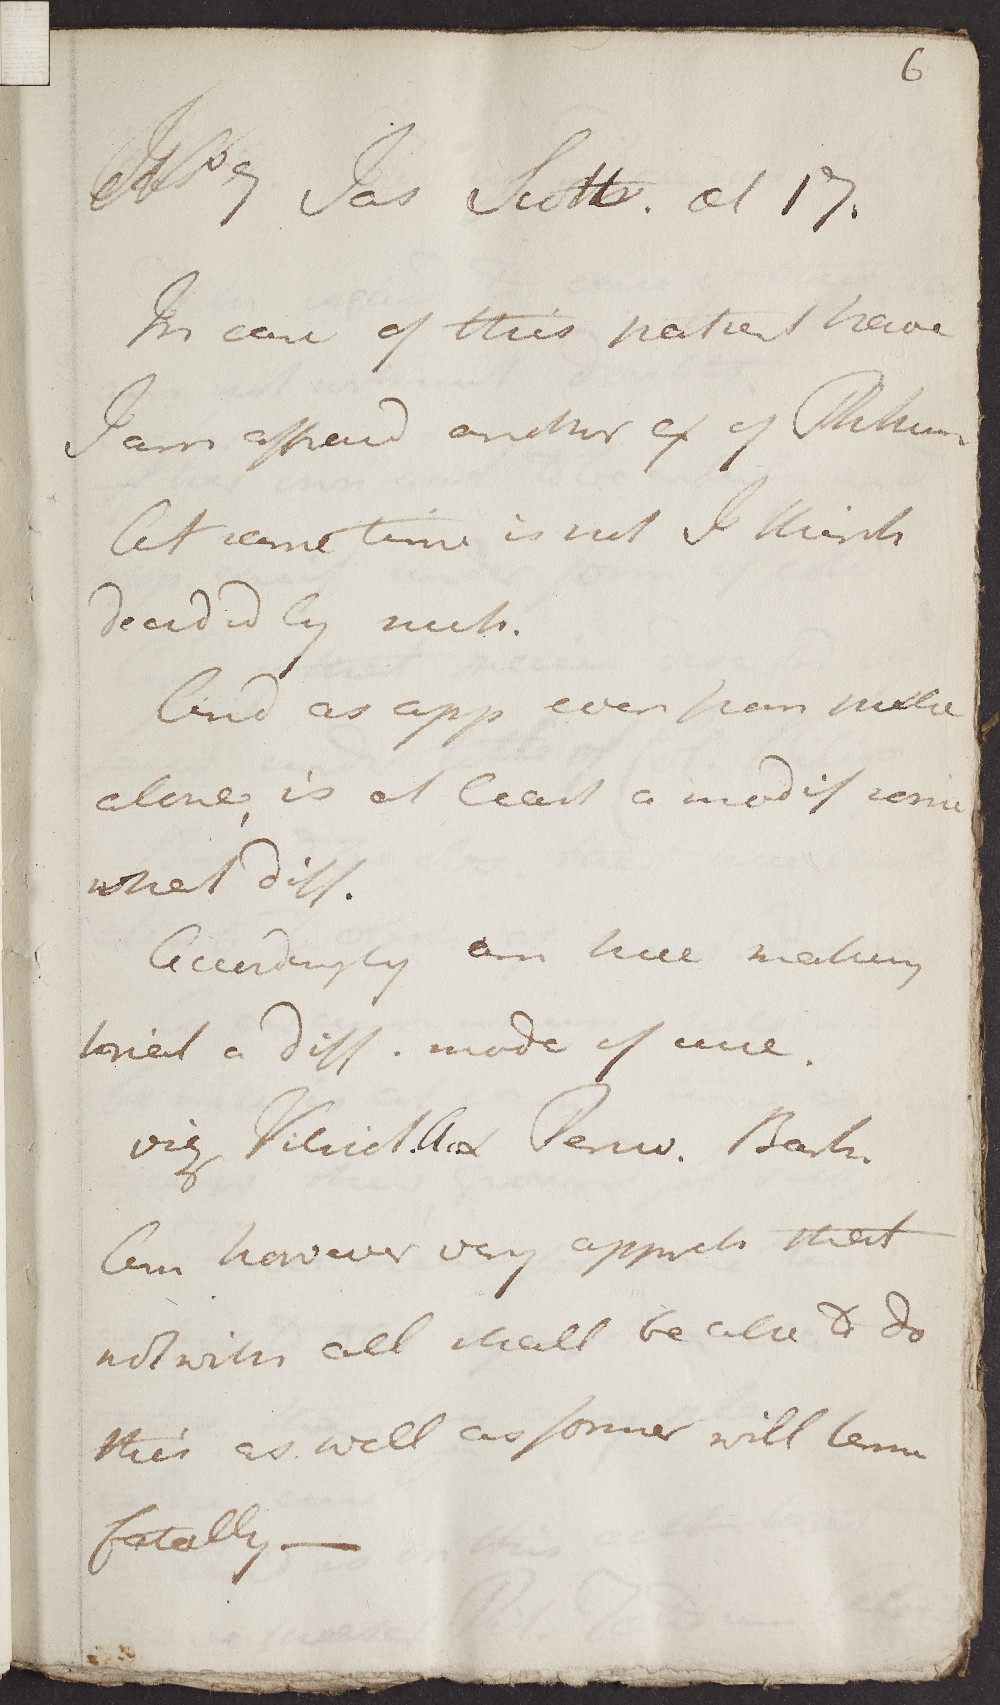 6
No 7 Jas Scott. at 17.
In case of this patient have
I am affraid another ex of Phthisis
At same time is not I think
decidedly such.
And as app even from
alone, is at least a modif some
what diff.
Accordingly am here making
trial a diff. mode of cure.
viz Vitriol. Ac & Peruv. Bark.
Am however very appreh that
notwith all shall be able to do
this as well as former will term
fatally —